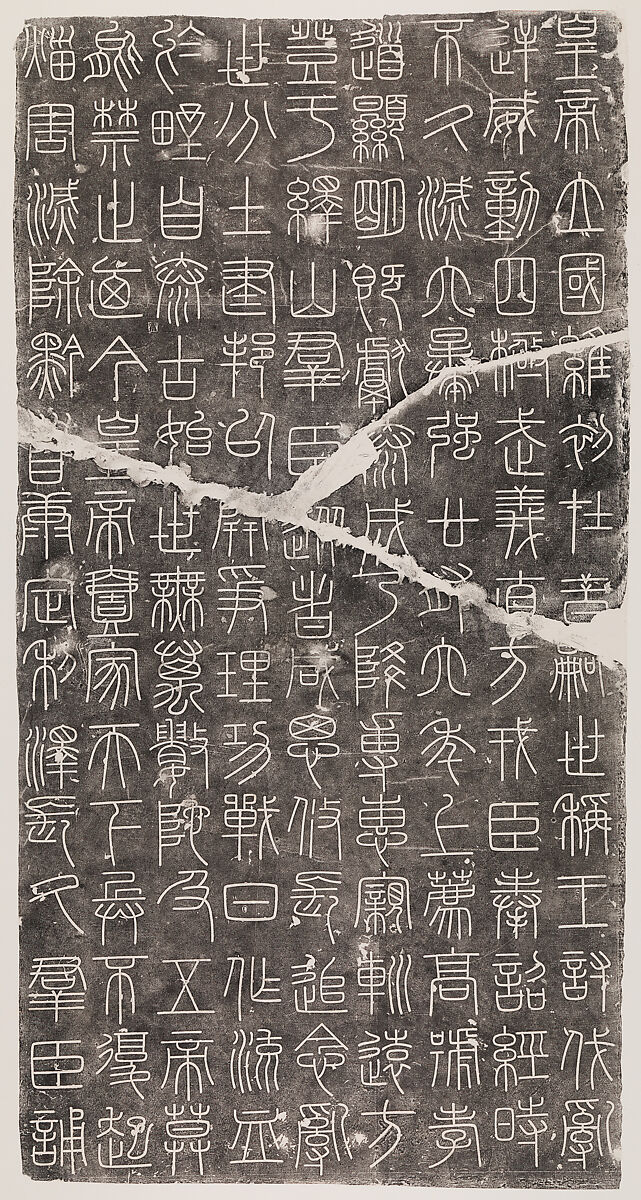 皇帝立國維初在昔嗣世稱王討伐亂
逆威動四極武義直方戎臣奉詔經時
不久滅六暴強廿有六年上薦高號孝
道顯明既獻泰成乃降專惠寴𨊠遠方
登于繹山羣臣從者咸思攸長追念亂
世分土建邦以開爭理功戰日作流血
於野自泰古始世無萬數陀及五帝莫
能禁止迺今皇帝壹家天下兵不復起
災害滅除黔首康定利澤長久羣臣誦